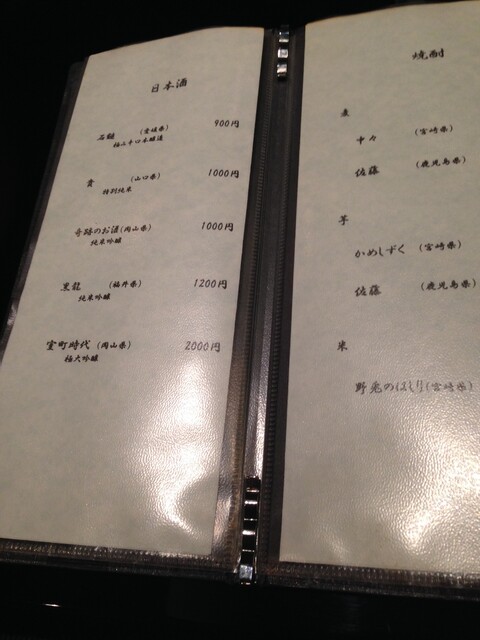 日本酒
石鎚 (愛媛県) 900円
極ふ辛口本醸造
貴 (山口県) 1000円
特別純米
奇跡のお酒(岡山県) 1000円
純米吟醸
黒龍 (福井県) 1200円
純米吟醸
室町時代 (岡山県) 2000円
極大吟醸
焼酎
麦
中々 (宮崎県)
佐藤 (鹿児島県)
芋
かめしずく (宮崎県)
佐藤 (鹿児島県)
米
野兎のはしり(宮崎県)